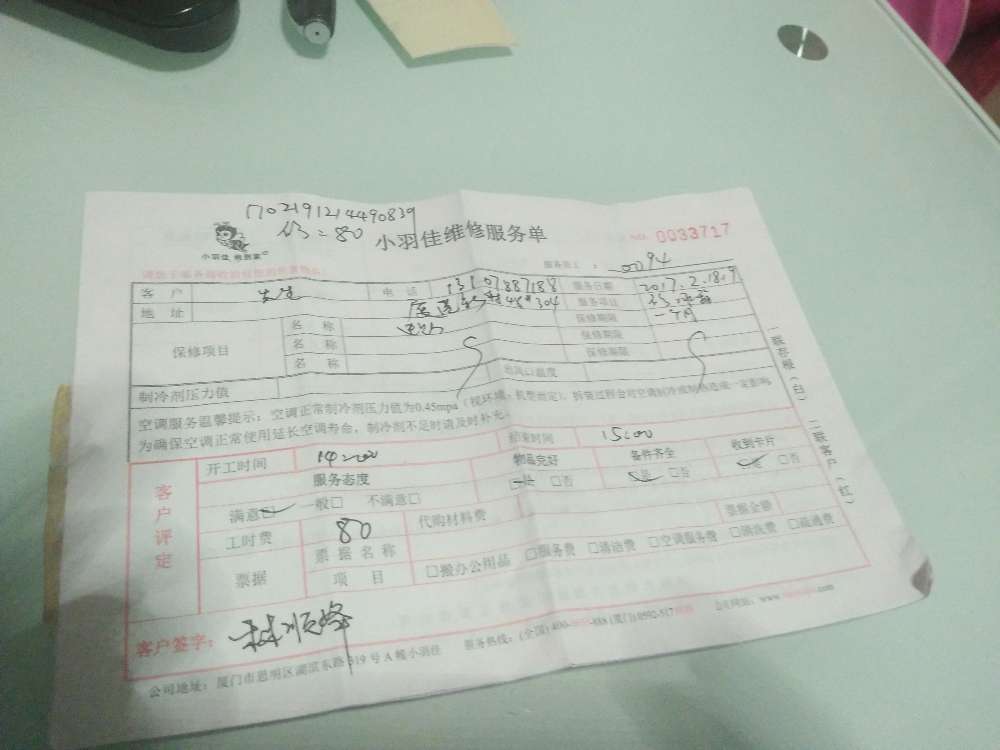 170219121449083​9
修=80
小羽佳维修服务单
NO. 0033717
小羽佳 修到家
服务员工：0094
客户 电话 13107887188 服务日期 2017.2.18.9
地址 48#304 服务项目
保修项目 名称 保修期限 一个月
名称 保修期限
名称 保修期限
制冷剂压力值 出风口温度
空调服务温馨提示：空调正常制冷剂压力值为0.45mpa（视环境、机型而定），拆装过程会对空调制冷或制热造成一定影响
为确保空调正常使用延长空调寿命，制冷剂不足时请及时补充。
客户评定
开工时间 14:00 结束时间 15:00
服务态度 物品完好 备件齐全 收到卡片
满意 一般□ 不满意□ 是 □否 是 □否 是 □否
工时费 80 代购材料费
票据 票据名称 票据金额
项目 □搬办公用品 □服务费 □清洁费 □空调服务费 □清洗费 □疏通费
客户签字：林顺峰
公司地址：厦门市思明区湖滨东路319号A幢小羽佳 服务热线：(全国)400- -888 (厦门)0592-517 公司网站：www.
一联存根（白） 二联客户（红）